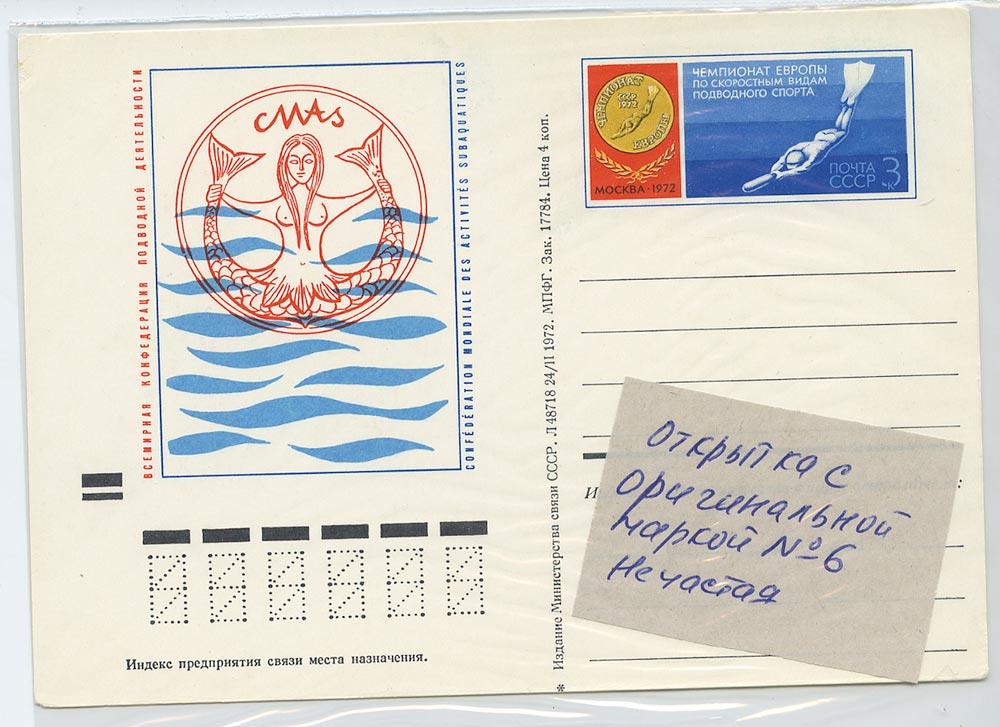 ВСЕМИРНАЯ КОНФЕДЕРАЦИЯ ПОДВОДНОЙ ДЕЯТЕЛЬНОСТИ
CMAS
CONFÉDÉRATION MONDIALE DES ACTIVITÉS SUBAQUATIQUES
Индекс предприятия связи места назначения.
* Издание Министерства связи СССР. Л 48718 24/II 1972. МПФГ. Зак. 17784. Цена 4 коп.
ЧЕМПИОНАТ
СССР
1972
ЕВРОПЫ
МОСКВА·1972
ЧЕМПИОНАТ ЕВРОПЫ
ПО СКОРОСТНЫМ ВИДАМ
ПОДВОДНОГО СПОРТА
ПОЧТА
СССР
3
К
И
:
Открытка с
оригинальной
маркой №6
Нечастая